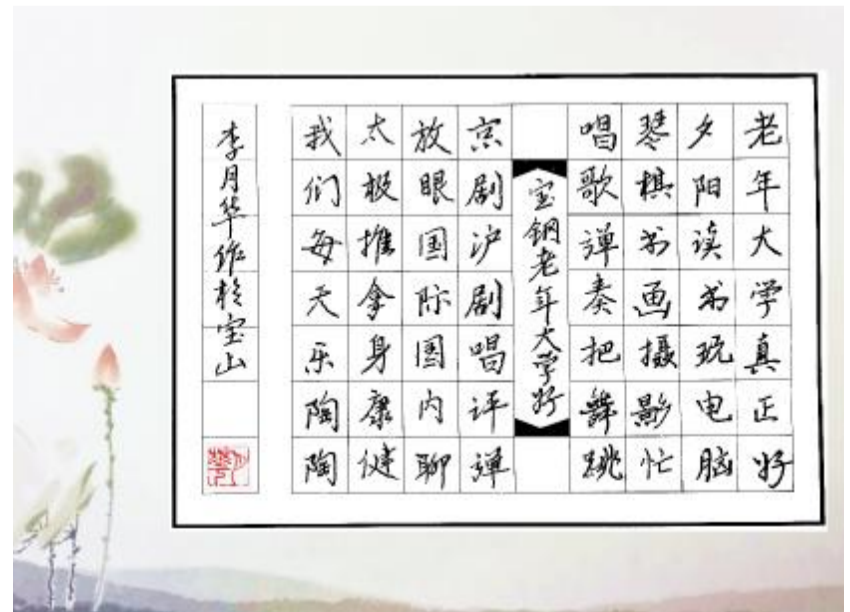 老年大学真正好
夕阳阳读书玩电脑
琴棋书画摄影忙
唱歌弹奏把舞跳
宝钢老年大学好
京剧沪剧唱评弹
放眼国际国内聊
太极推拿身康健
我们每天乐陶陶
李月华作于宝山